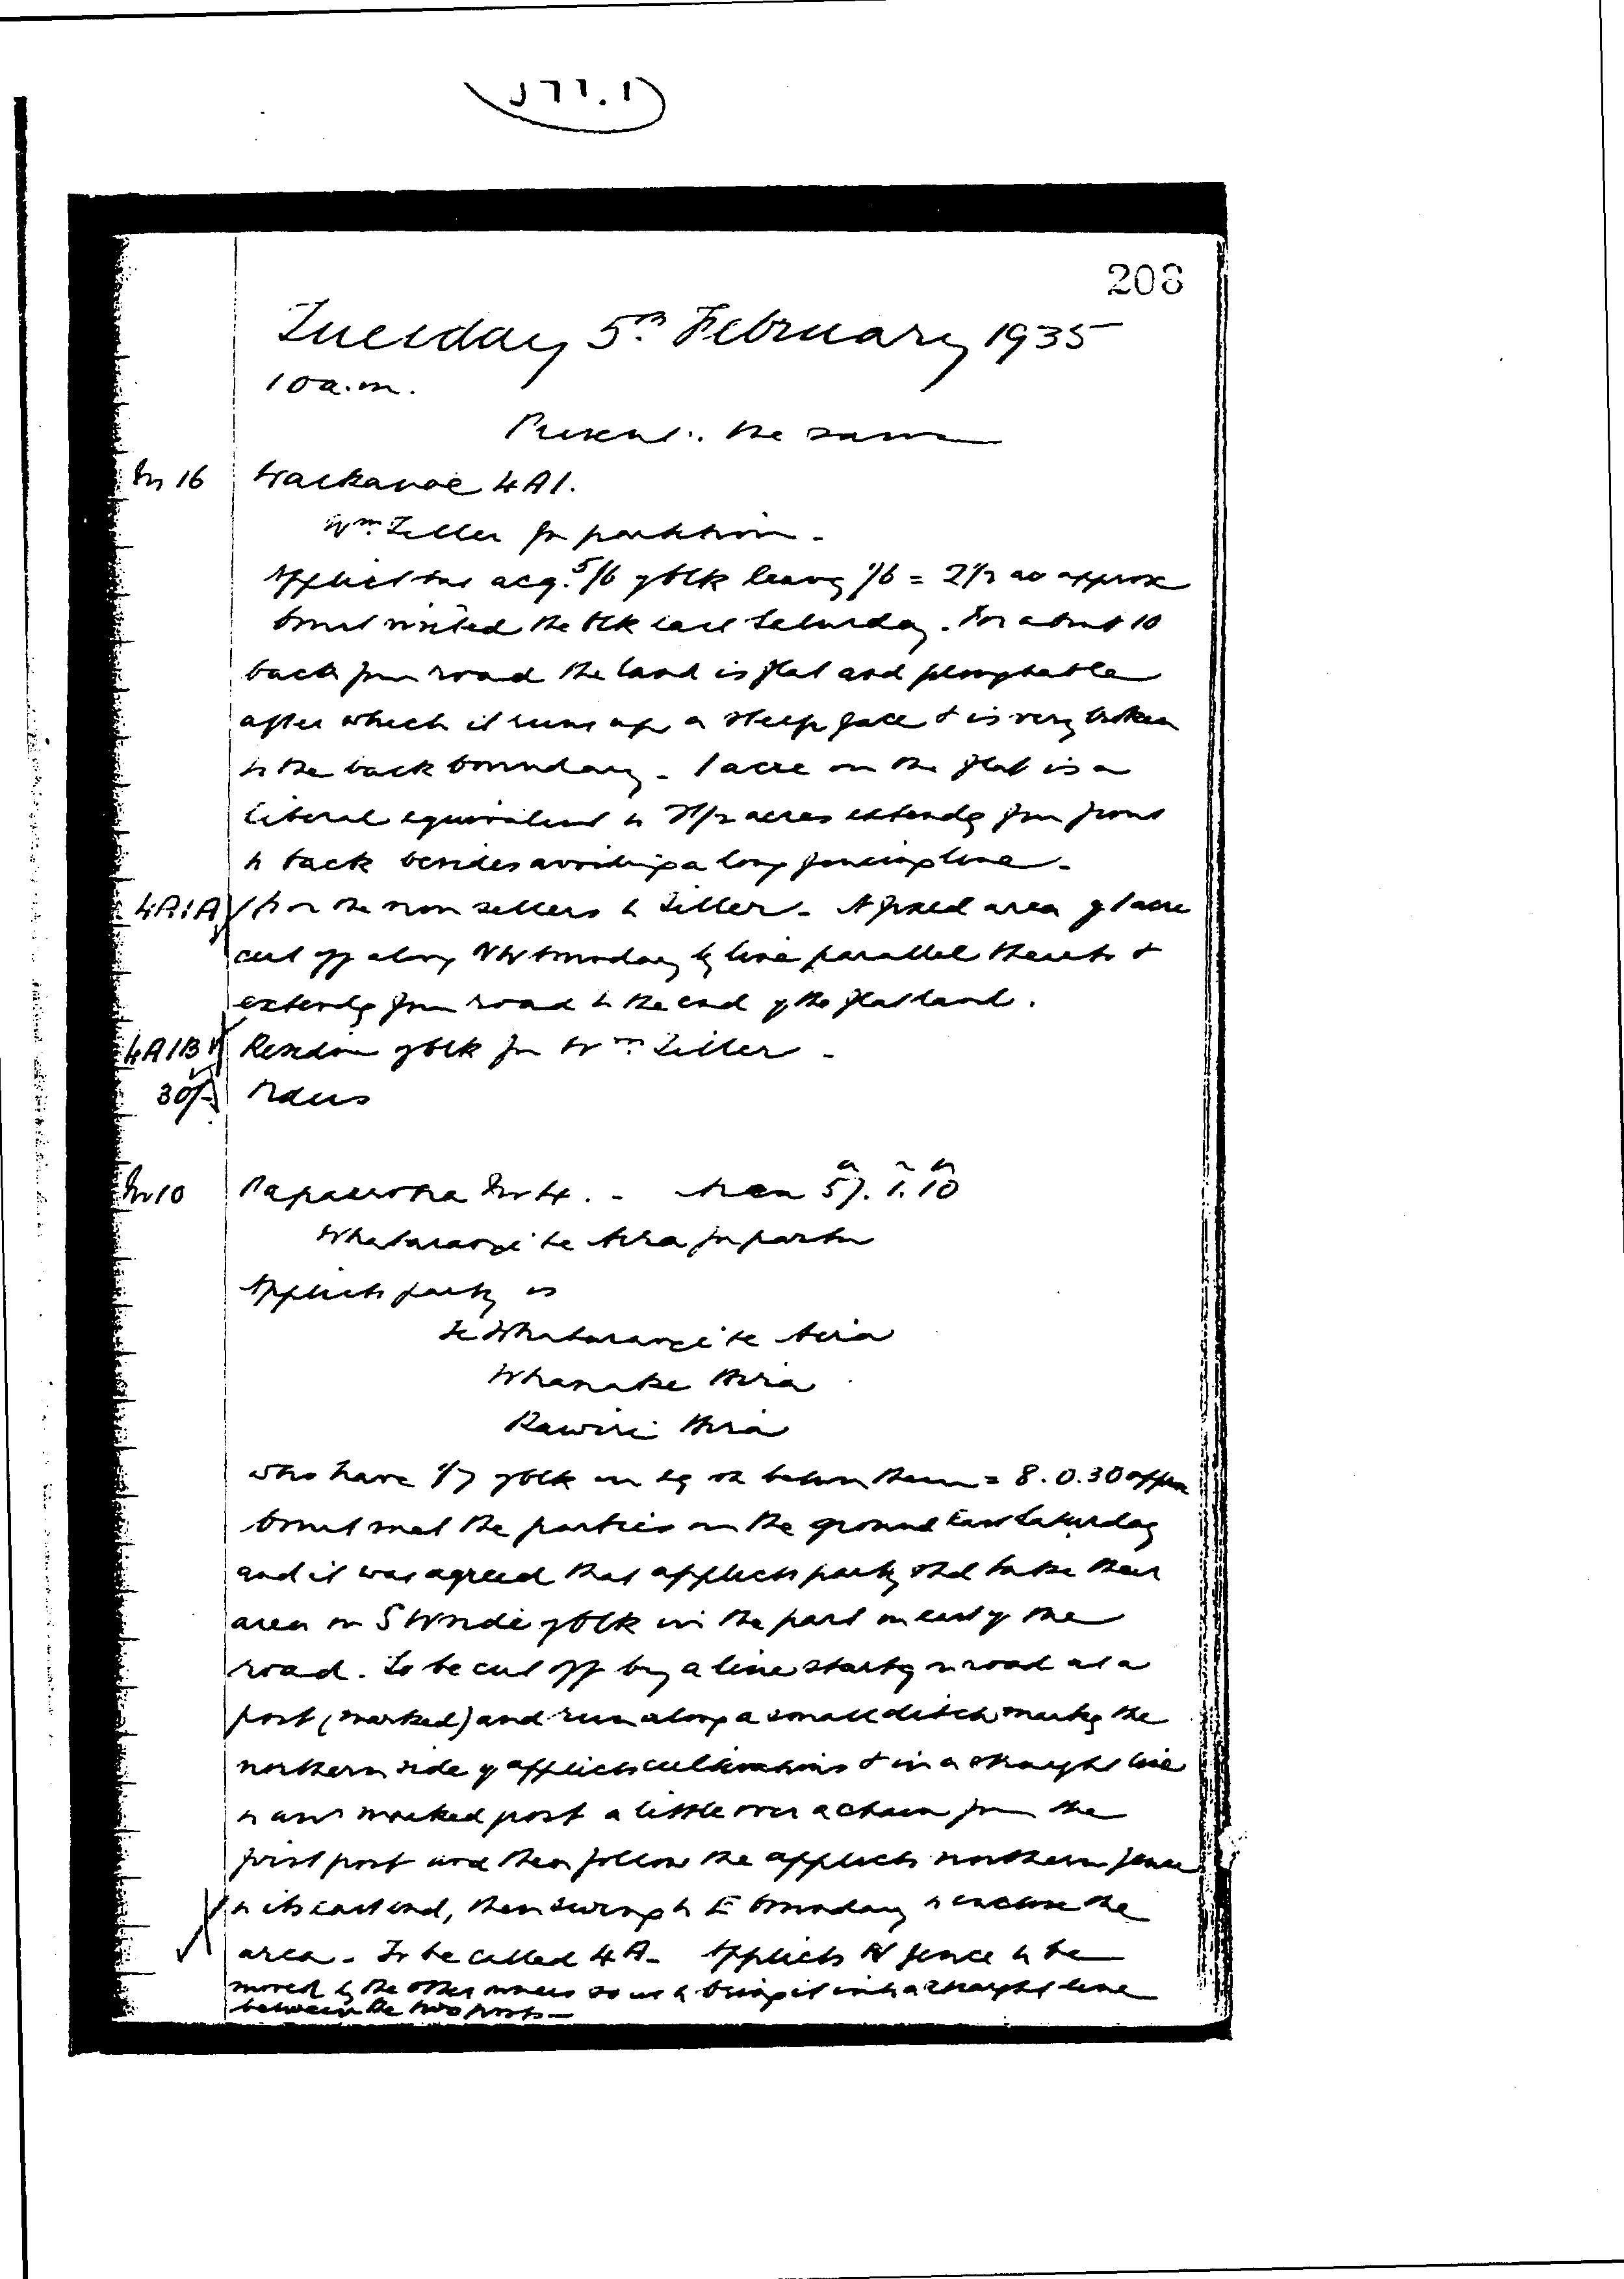 J77.1
208
Tuesday 5th February 1935
10 a.m.
Present: the same
No 16 Waikanae 4A1.
Wm Teller for partition.
Applict has acq. 5/6 of blk leavg 1/6 = 2 1/2 ac approx
Court visited the blk last Saturday. For about 10
back from road the land is flat and ploughable
after which it runs up a steep face & is very broken
to the back boundary. 1 acre on the flat is a
liberal equivalent to 2 1/2 acres extendg from front
to back besides avoiding a long fencing line.
4A1A for the non sellers to Teller. A fixed area of 1 acre
cut off along NW boundary by line parallel thereto &
extendg from road to the end of the flat land.
4A1B Residue of blk for Wm Teller.
30/- Orders
No 10 No 4. - Area 57. 1. 10
Whatarangi te for partn
Applicts party is
Te Whatarangi te
Whanake
Rawiri
who have 1/7 of blk in eq sh between them = 8.0.30 approx
Court met the parties on the ground last Saturday
and it was agreed that applicts party shd take their
area on SW side of blk in the part on east of the
road. To be cut off by a line startg on road at a
post (marked) and run along a small ditch markg the
northern side of applicts cultivations & in a straight line
to anr marked post a little over a chain from the
first post and then follow the applicts northern fence
to its east end, then swing to E boundary to enclose the
area. To be called 4A. Applicts N fence to be
moved by the other owners so as to bring it into a straight line
between the two posts